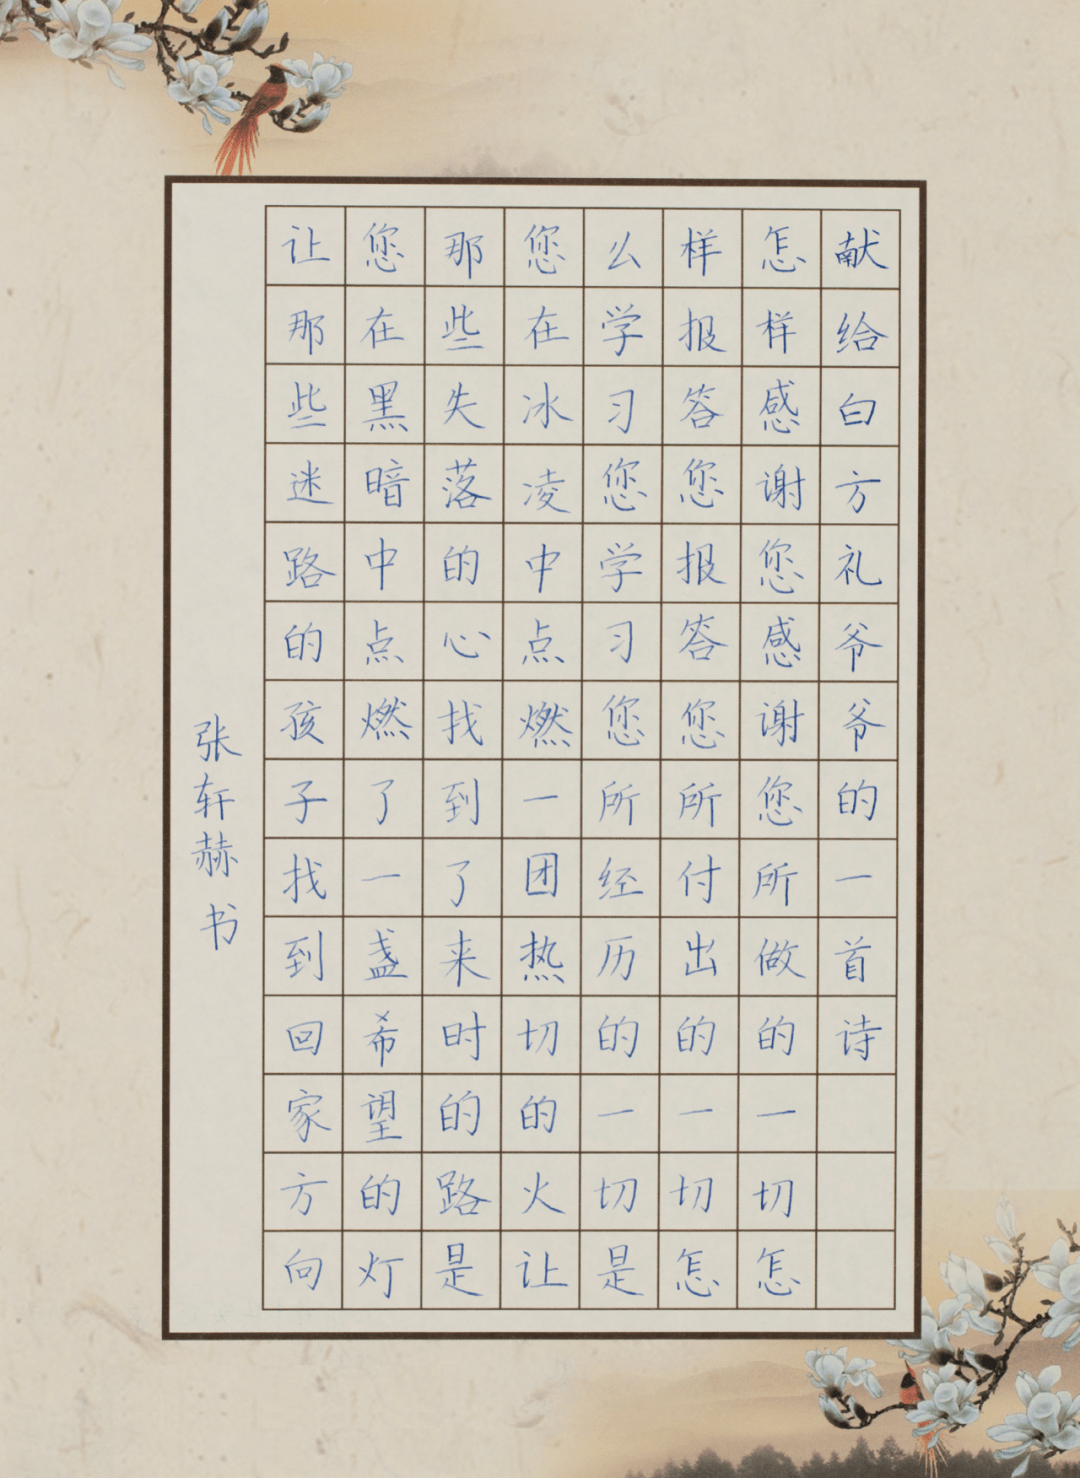 献给白方礼爷爷的一首诗
怎样感谢您感谢您所做的一切怎
样报答您报答您所付出的一切怎
么学习您学习您所经历的一切是
您在冰凌中点燃一团热切的火让
那些失落的心找到了来时的路是
您在黑暗中点燃了一盏希望的灯
让那些迷路的孩子找到回家方向
张轩赫书